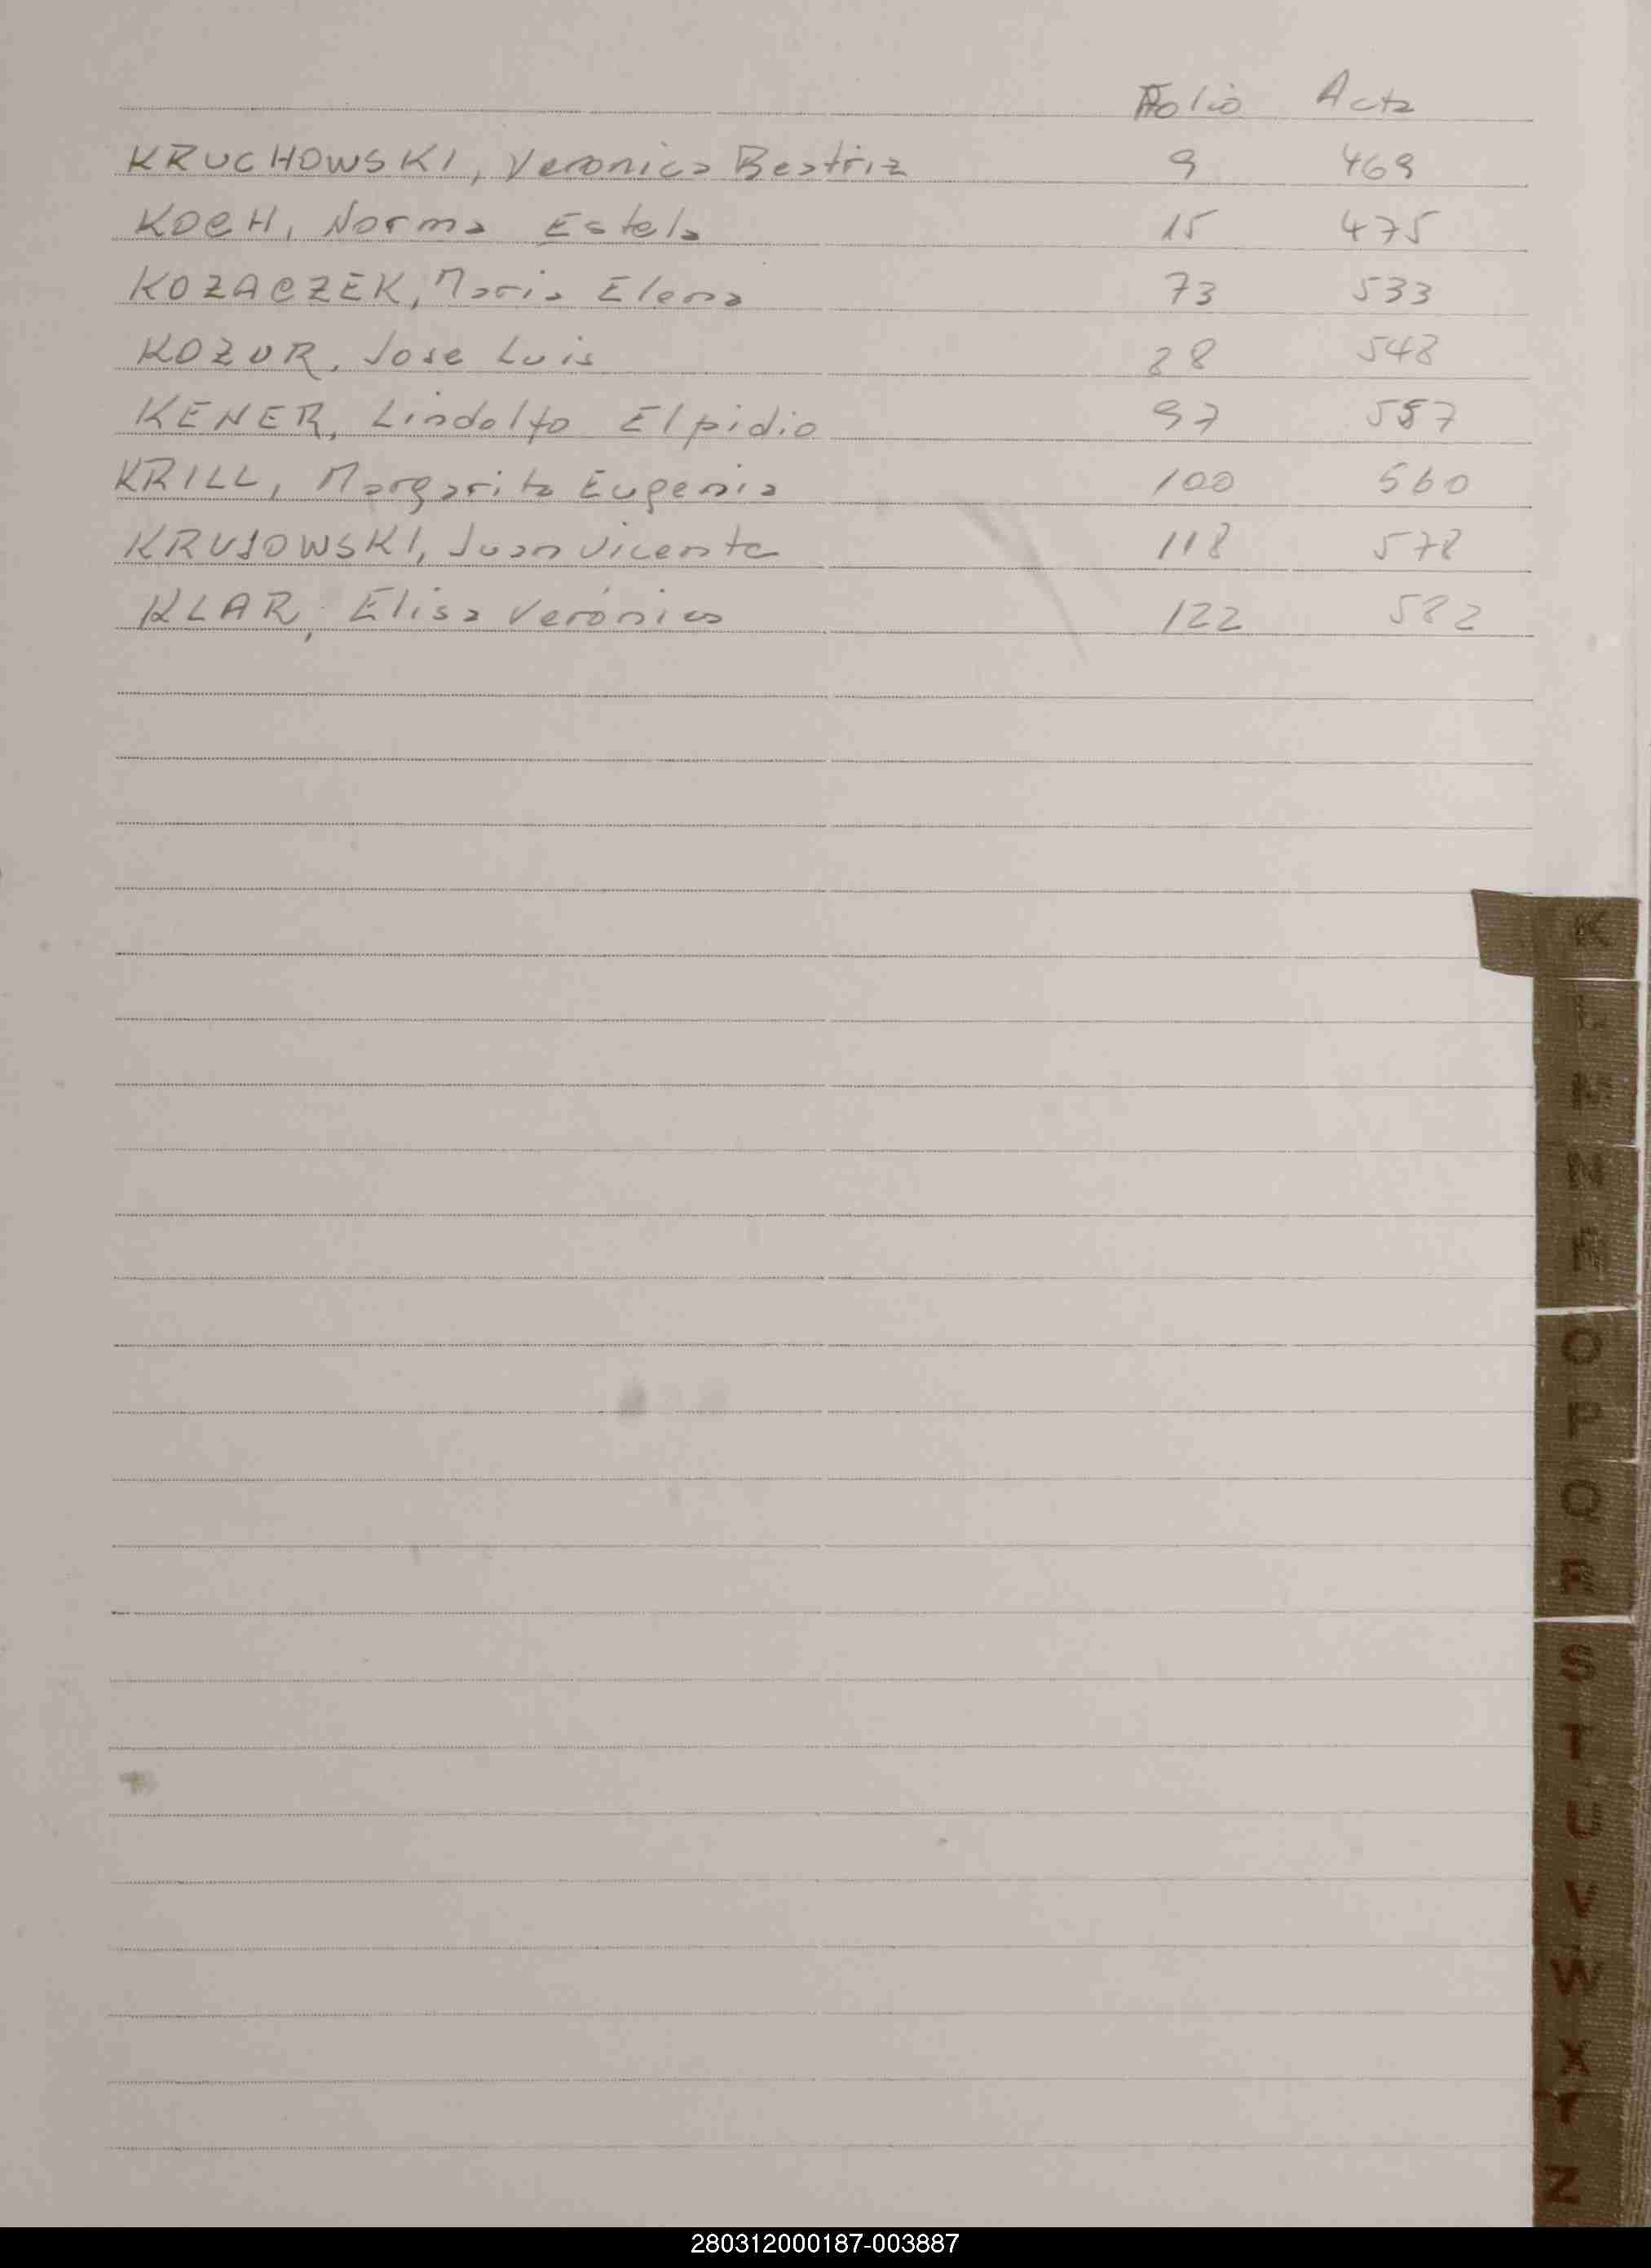 Folio Acta
KRUCHOWSKI, Veronica Beatriz 9 469
KOCH, Norma Estela 15 475
KOZACZEK, Maria Elena 73 533
KOZUR, Jose Luis 88 548
KENER, Lindolfo Elpidio 97 557
KRILL, Margarita Eugenia 100 560
KRUJOWSKI, Juan Vicente 118 578
KLAR, Elisa Verónica 122 582
K
L
M
N
Ñ
O
P
Q
R
S
T
U
V
W
X
Y
Z
280312000187-003887